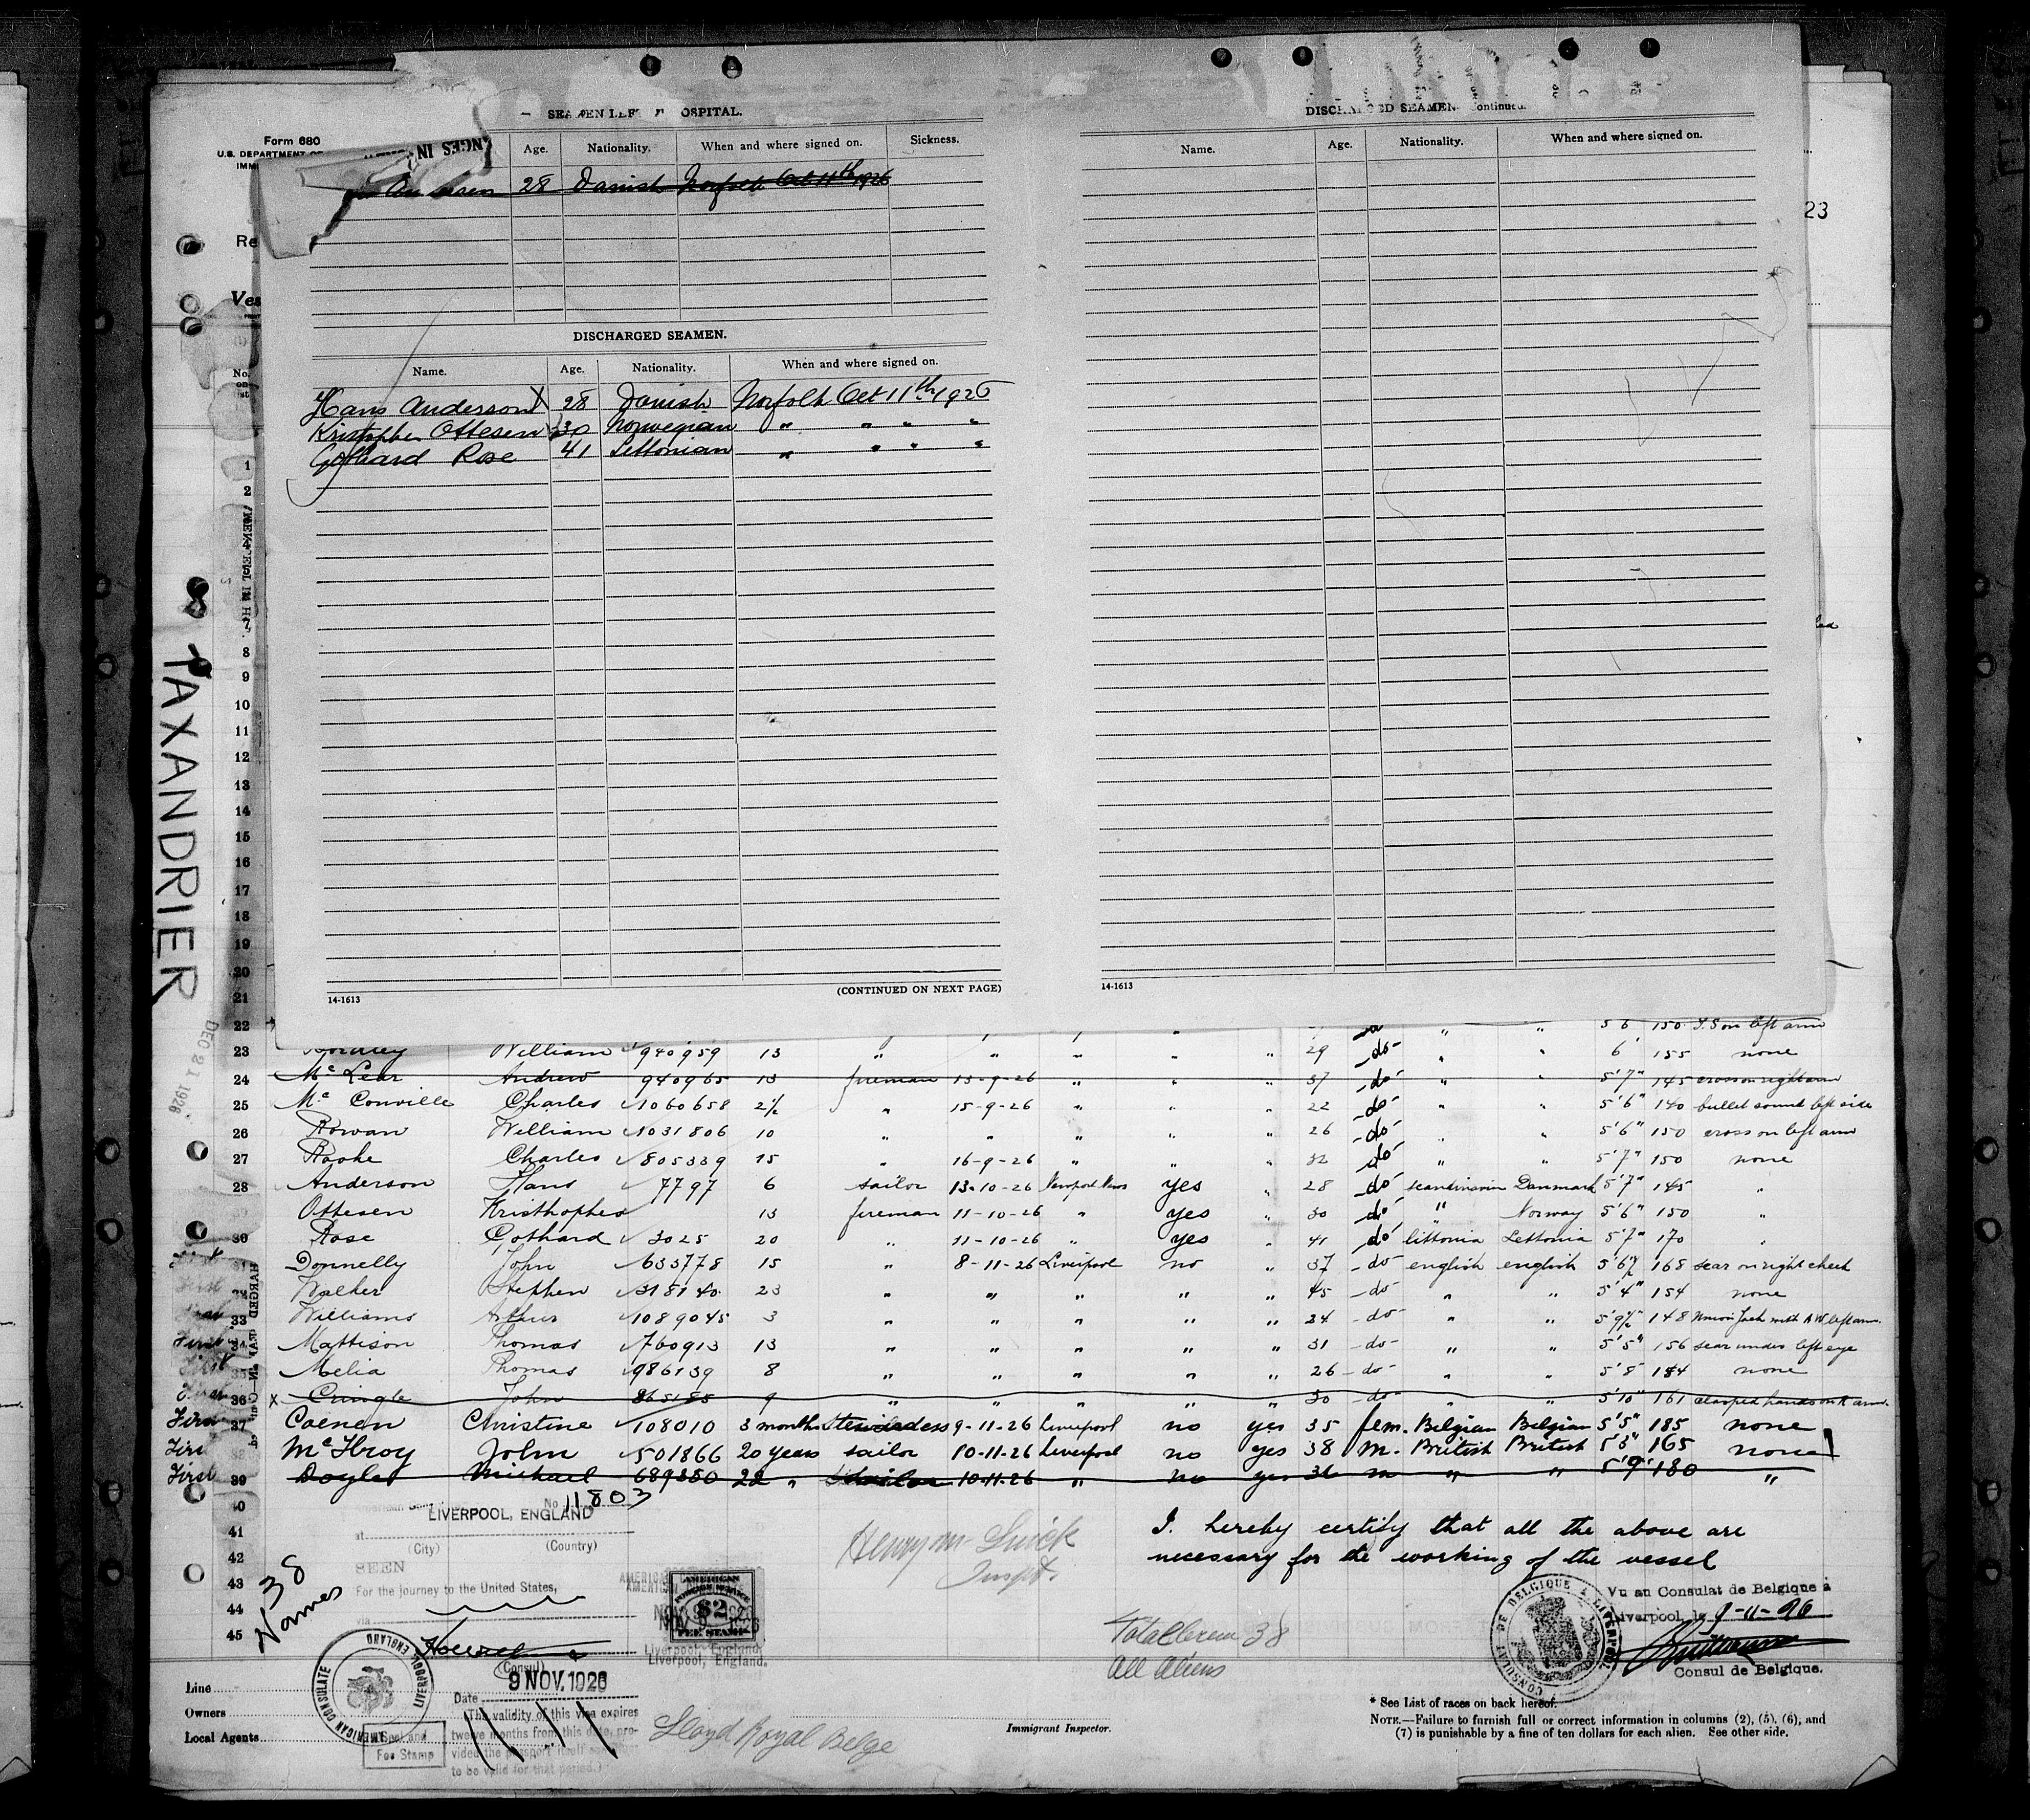 SEAMEN LEFT IN HOSPITAL.
Form 680
U.S. DEPARTMENT OF
Age. Nationality. When and where signed on. Sickness.
28 Danish Norfolk Oct 11th 1926
DISCHARGED SEAMEN.
Name. Age. Nationality. When and where signed on.
Hans Anderson 28 Danish Norfolk Oct 11th 1926
Kristopher Ottesen 30 Norwegian " " " "
Gothard Rose 41 Lettonian " " " "
14-1613 (CONTINUED ON NEXT PAGE)
DISCHARGED SEAMEN Continued.
Name. Age. Nationality. When and where signed on.
14-1613
23
TAXANDRIER
DEC 21 1926
1
2
7
8
9
10
11
12
13
14
15
16
17
18
19
20
21
22 5'6 150 left arm
23 William 940959 13 " " " " " 29 -do- " " 6' 155 none
24 McLear Andrew 940965 13 fireman 15-9-26 " " " 37 -do- " " 5'7" 145 cross on right arm
25 McConville Charles 1060658 2½ " 15-9-26 " " " 22 -do- " " 5'6" 140 bullet wound left side
26 Rowan William 1031806 10 " " " " " 26 -do- " " 5'6" 150 cross on left arm
27 Rooke Charles 805339 15 " 16-9-26 " " " 32 do " " 5'7" 150 none
28 Anderson Hans 7797 6 sailor 13-10-26 Newport News yes " 28 -do- scandinavian Danmark 5'7" 145 "
Ottesen Kristhopher 13 fireman 11-10-26 " yes " 30 do " Norway 5'6" 150 "
30 Rose Gothard 3025 20 " 11-10-26 " yes " 41 do littonia Lettonia 5'7" 170 "
31 Donnelly John 633778 15 " 8-11-26 Liverpool no " 37 -do- english english 5'6½ 168 scar on right cheek
Walker Stephen 318140 23 " " " " " 45 -do- " " 5'4" 154 none
33 Williams Arthur 1089045 3 " " " " " 24 -do- " " 5'9½" 148 Union Jack with A W left arm
First 34 Mattison Thomas 760913 13 " " " " " 31 -do- " " 5'5" 156 scar under left eye
First 35 Melia Thomas 986139 8 " " " " " 26 -do- " " 5'8" 184 none
First 36 x Cringle John 865185 9 " " " " " 30 -do- " " 5'10" 161 clasped hands on R arm.
First 37 Coenen Christine 108010 3 months Stewardess 9-11-26 Liverpool no yes 35 fem. Belgian Belgian 5'5" 185 none
First 38 McIlroy John 501866 20 years sailor 10-11-26 Liverpool no yes 38 M. British British 5'8" 165 none
First 39 Doyle Michael 689350 22 " Sailor 10-11-26 " no yes 36 m " " 5'9" 180 "
40
41
42
43
44
45
No. 11803
LIVERPOOL, ENGLAND
at
(City) (Country)
SEEN
For the journey to the United States,
via
(Consul)
9 NOV. 1926
Date
(The validity of this visa expires
twelve months from this date, pro-
vided the passport itself
to be valid for that period.)
AMERICAN CONSULATE LIVERPOOL, ENGLAND
Seal and
Fee Stamp
38
Names
AMERICAN
FOREIGN SERVICE
$2
FEE STAMP
Liverpool, England.
Liverpool, England.
I. hereby certify that all the above are
necessary for the working of the vessel
Total Crew 38
All Aliens
CONSULAT DE BELGIQUE A LIVERPOOL
Vu au Consulat de Belgique à
Liverpool, le 9-11-26
Consul de Belgique.
Line
Owners
Local Agents
Lloyd Royal Belge
Immigrant Inspector.
* See List of races on back hereof.
NOTE.—Failure to furnish full or correct information in columns (2), (5), (6), and
(7) is punishable by a fine of ten dollars for each alien. See other side.